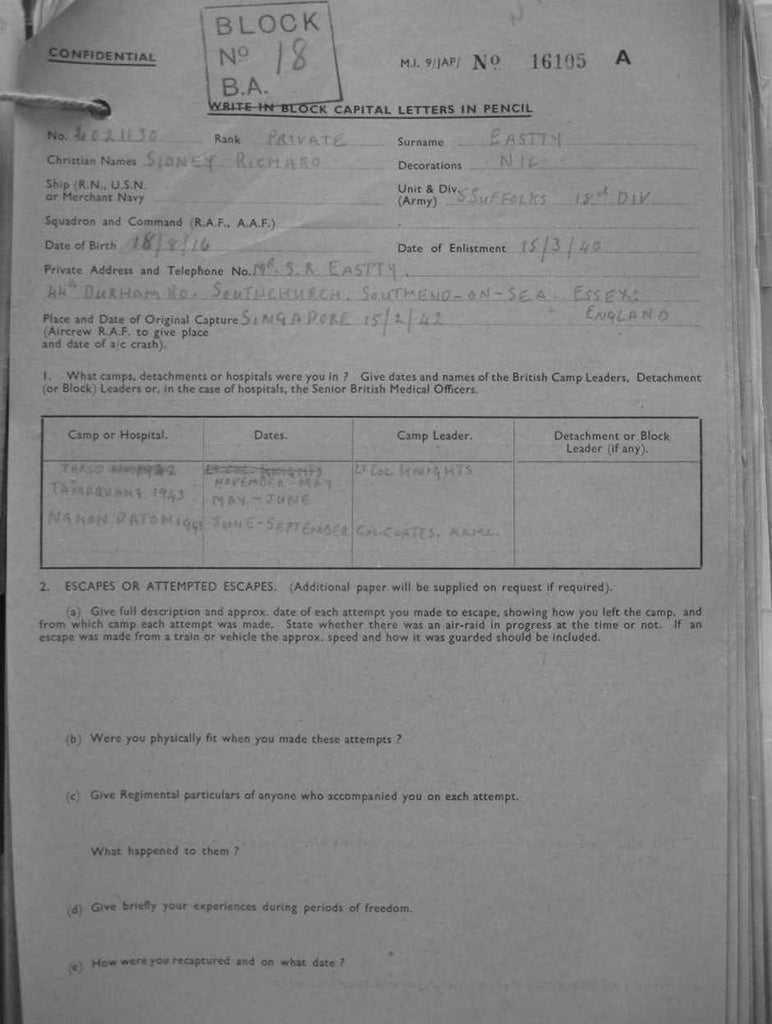 BLOCK
Nº 18
B.A.
CONFIDENTIAL
M.I. 9/JAP/ Nº 16105 A
WRITE IN BLOCK CAPITAL LETTERS IN PENCIL
No. Rank PRIVATE Surname EASTTY
Christian Names SIDNEY RICHARD Decorations NIL
Ship (R.N., U.S.N. or Merchant Navy
Unit & Div. (Army) 5 SUFFOLKS 18th DIV
Squadron and Command (R.A.F., A.A.F.)
Date of Birth 18/8/16 Date of Enlistment 15/3/40
Private Address and Telephone No. MR. S. R EASTTY.
DURHAM RD. SOUTHCHURCH. SOUTHEND-ON-SEA. ESSEX.
Place and Date of Original Capture SINGAPORE 15/2/42 ENGLAND
(Aircrew R.A.F. to give place
and date of a/c crash).
1. What camps, detachments or hospitals were you in ? Give dates and names of the British Camp Leaders, Detachment
(or Block) Leaders or, in the case of hospitals, the Senior British Medical Officers.
Camp or Hospital. Dates. Camp Leader. Detachment or Block
Leader (if any).
LT COL KNIGHTS
NOVEMBER-MAY
1943 MAY-JUNE
NAKON PATON JUNE-SEPTEMBER COL COATES.
2. ESCAPES OR ATTEMPTED ESCAPES. (Additional paper will be supplied on request if required).
(a) Give full description and approx. date of each attempt you made to escape, showing how you left the camp, and
from which camp each attempt was made. State whether there was an air-raid in progress at the time or not. If an
escape was made from a train or vehicle the approx. speed and how it was guarded should be included.
(b) Were you physically fit when you made these attempts ?
(c) Give Regimental particulars of anyone who accompanied you on each attempt.
What happened to them ?
(d) Give briefly your experiences during periods of freedom.
(e) How were you recaptured and on what date ?